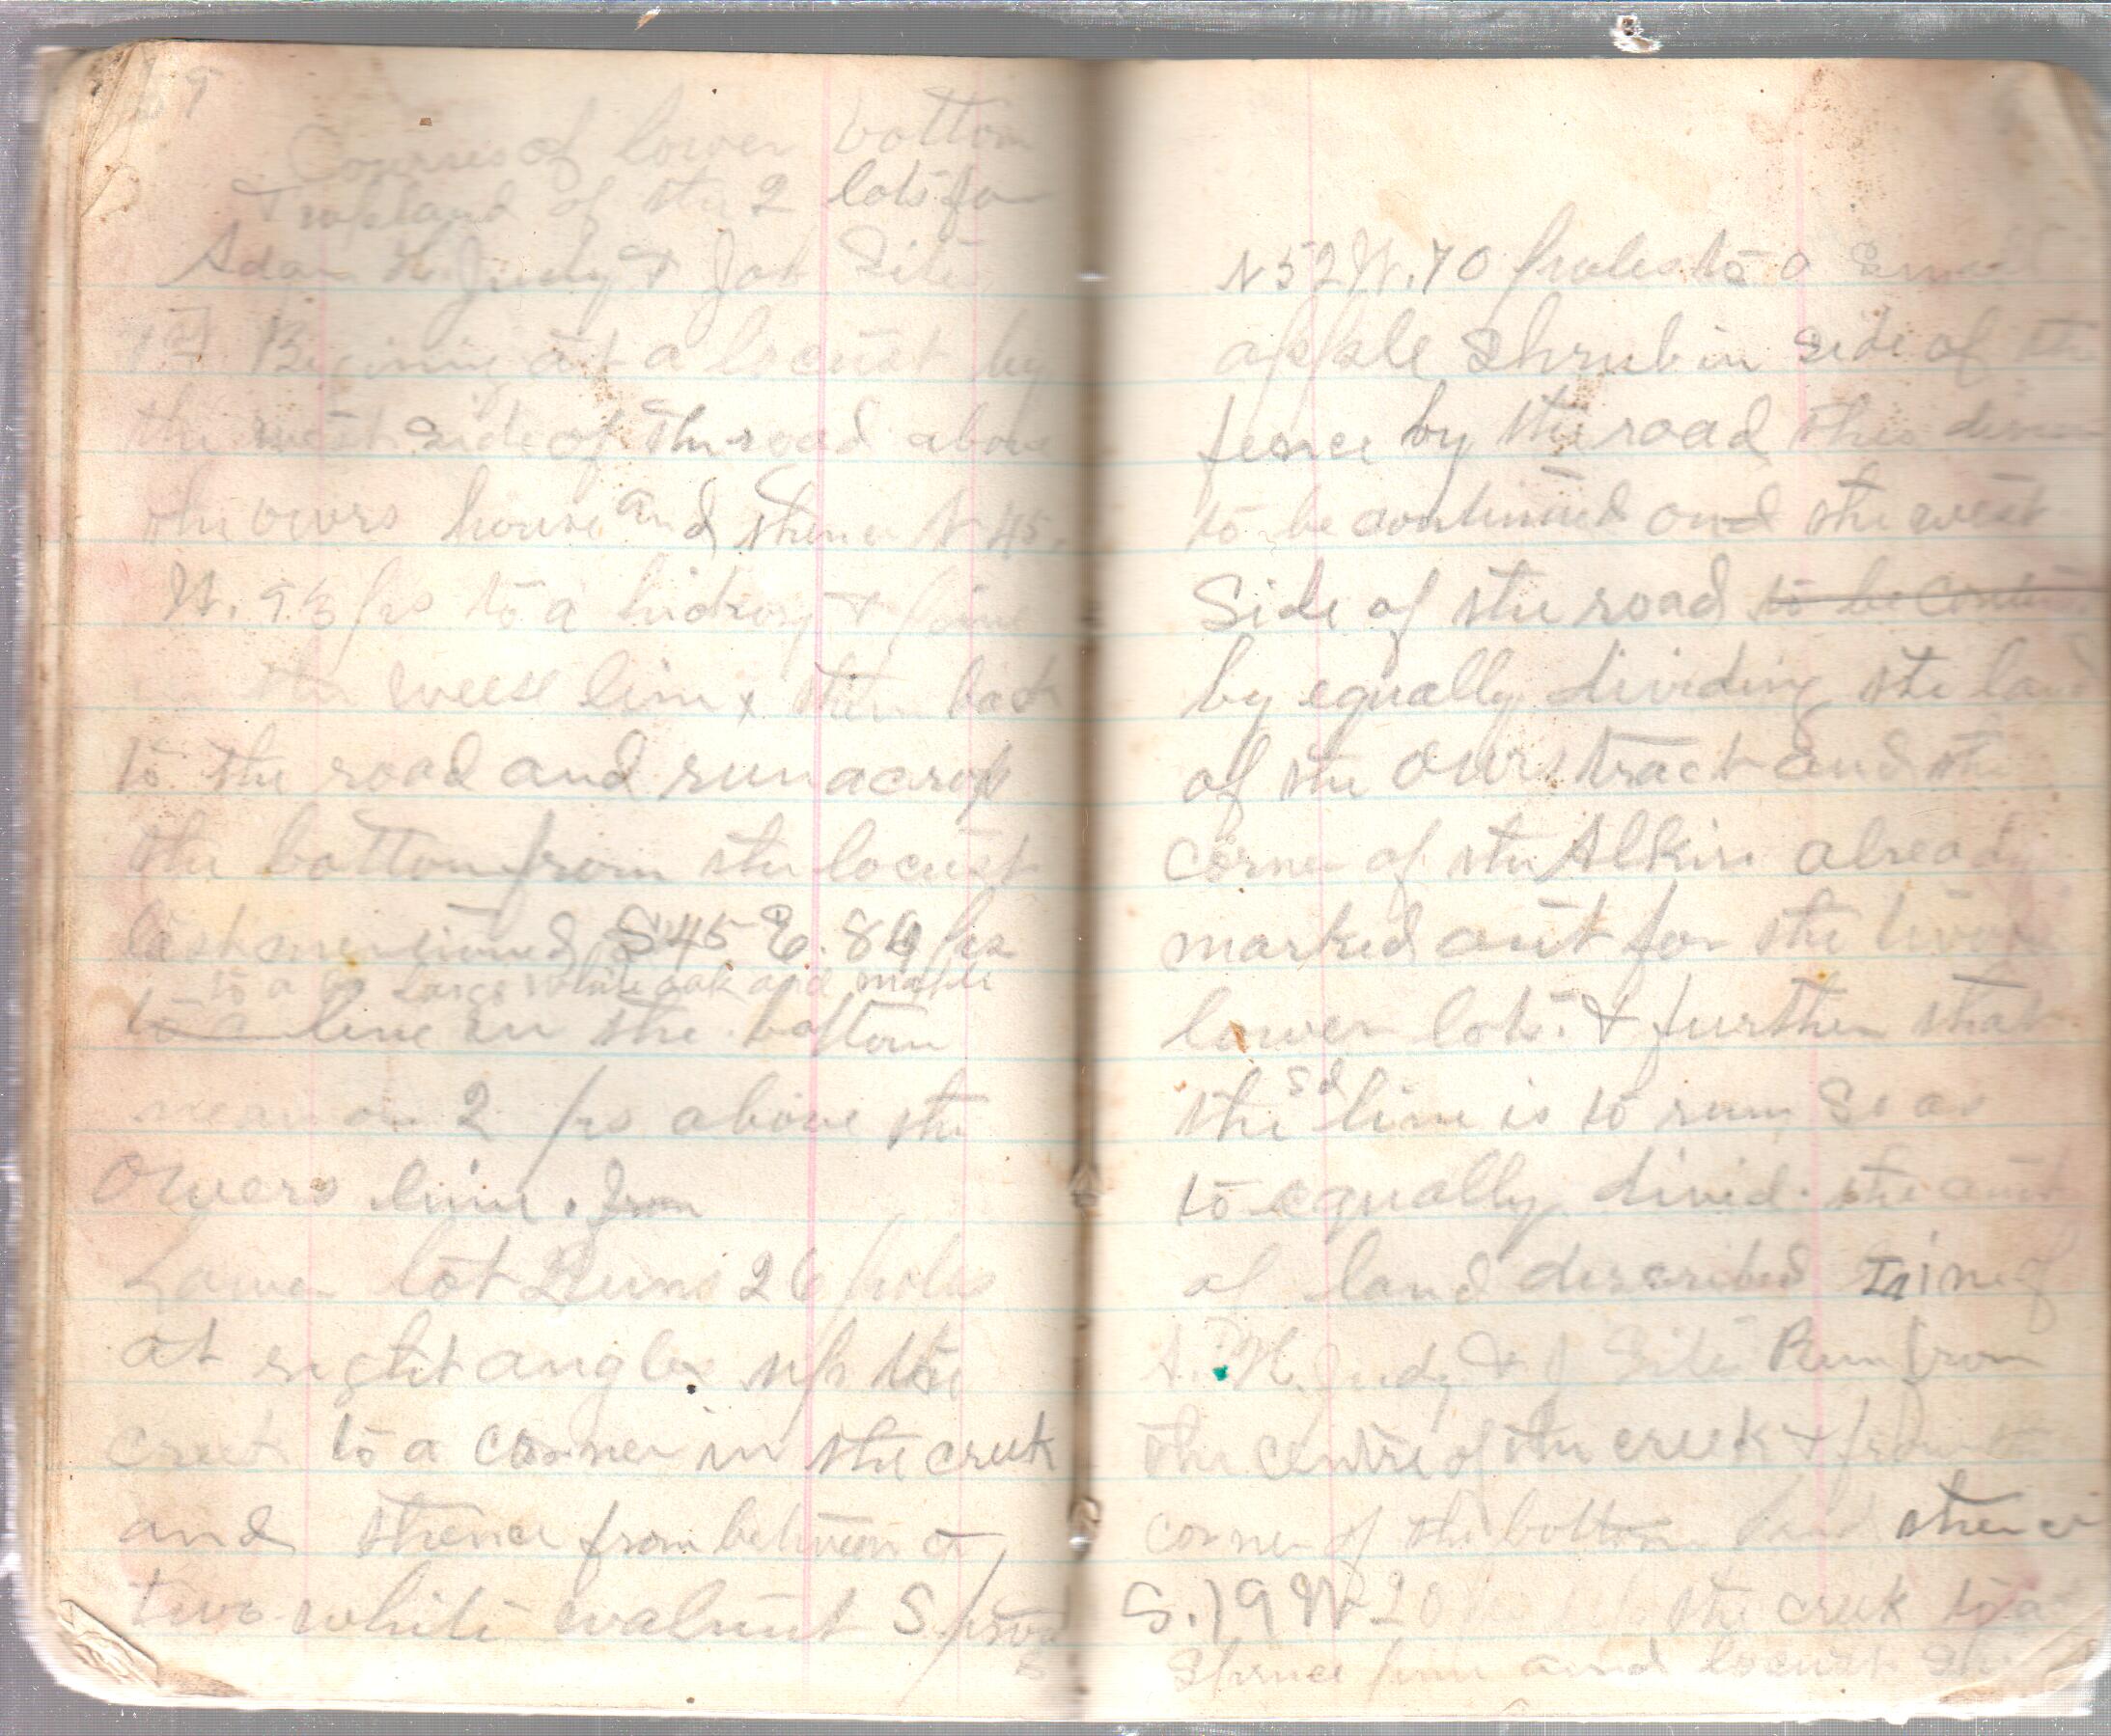 59
Courses of lower bottom
& upland of the 2 lots for
Adam H. Judy & Job Sites
1st Begining at a locust by
the west side of the road above
the owers house and thence N 45
W. 93 ps to a hickory & pine
in the weese line x then back
to the road and run across
the bottom from the locust
last mentioned S 45 E. 84 ps
to a large white oak and maple
to a line in the bottom
near 2 ps above the
Owers line. from
Lower lot Runs 26 poles
at right angles up the
creek to a corner in the creek
and thence from between
two white walnut Sprouts
N 52 W. 70 poles to a small
apple Shrub in side of the
fence by the road this
to be continued and the west
Side of the road to be continued
by equally dividing the land
of the Owrs tract and the
corner of the Alkire already
marked out for the
lower lots. & further that
the sd line is to run So as
to equally divid. the
of land described
A. H. Judy & J Sites Run from
the centre of the creek & from the
corner of the bottom land thence
S. 19 W 20 the creek to a
Spruce pine and locust